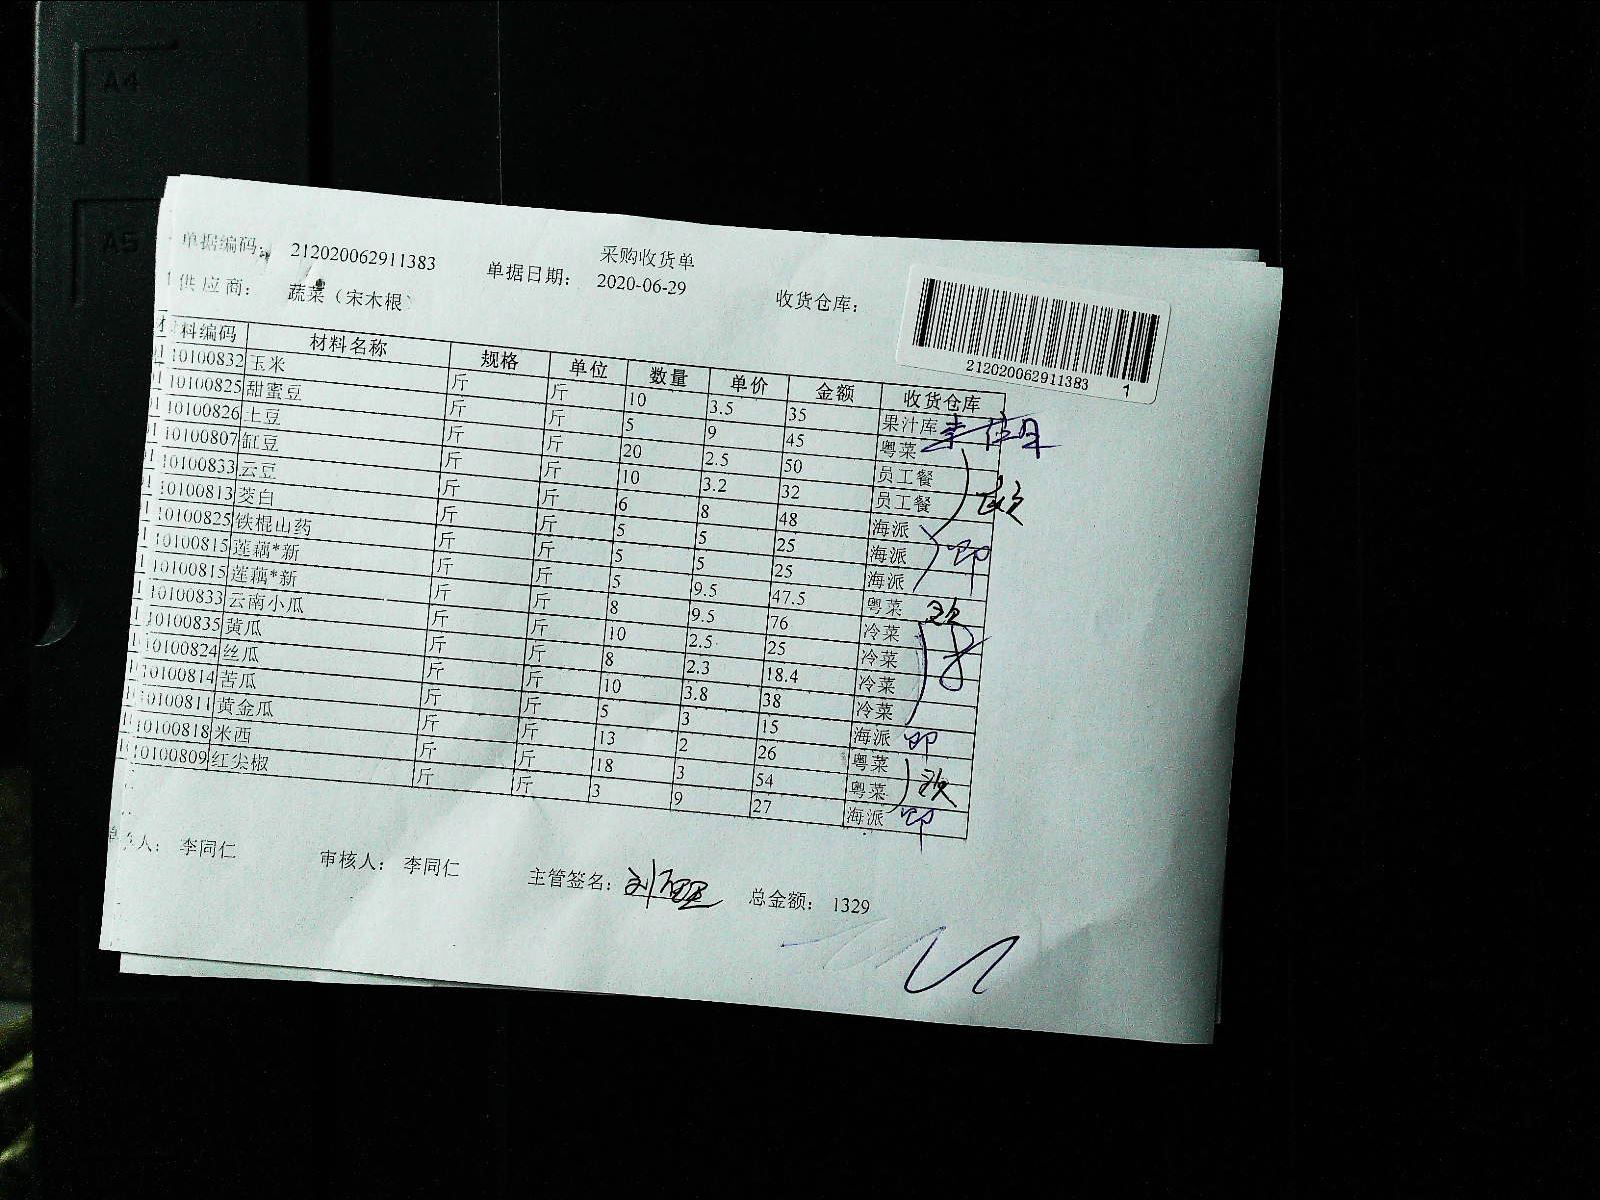 采购收货单
单据编码: 212020062911383 单据日期: 2020-06-29 收货仓库:
供应商: 蔬菜（宋木根）
212020062911383 1
材料编码 材料名称 规格 单位 数量 单价 金额 收货仓库
10100832 玉米 斤 斤 10 3.5 35 果汁库
10100825 甜蜜豆 斤 斤 5 9 45 粤菜
10100826 土豆 斤 斤 20 2.5 50 员工餐
10100807 缸豆 斤 斤 10 3.2 32 员工餐
10100833 云豆 斤 斤 6 8 48 海派
10100813 茭白 斤 斤 5 5 25 海派
10100825 铁棍山药 斤 斤 5 5 25 海派
10100815 莲藕*新 斤 斤 5 9.5 47.5 粤菜
10100815 莲藕*新 斤 斤 8 9.5 76 冷菜
10100833 云南小瓜 斤 斤 10 2.5 25 冷菜
10100835 黄瓜 斤 斤 8 2.3 18.4 冷菜
10100824 丝瓜 斤 斤 10 3.8 38 冷菜
10100814 苦瓜 斤 斤 5 3 15 海派
10100811 黄金瓜 斤 斤 13 2 26 粤菜
10100818 米西 斤 斤 18 3 54 粤菜
10100809 红尖椒 斤 斤 3 9 27 海派
人: 李同仁 审核人: 李同仁 主管签名: 总金额: 1329
A4
A5